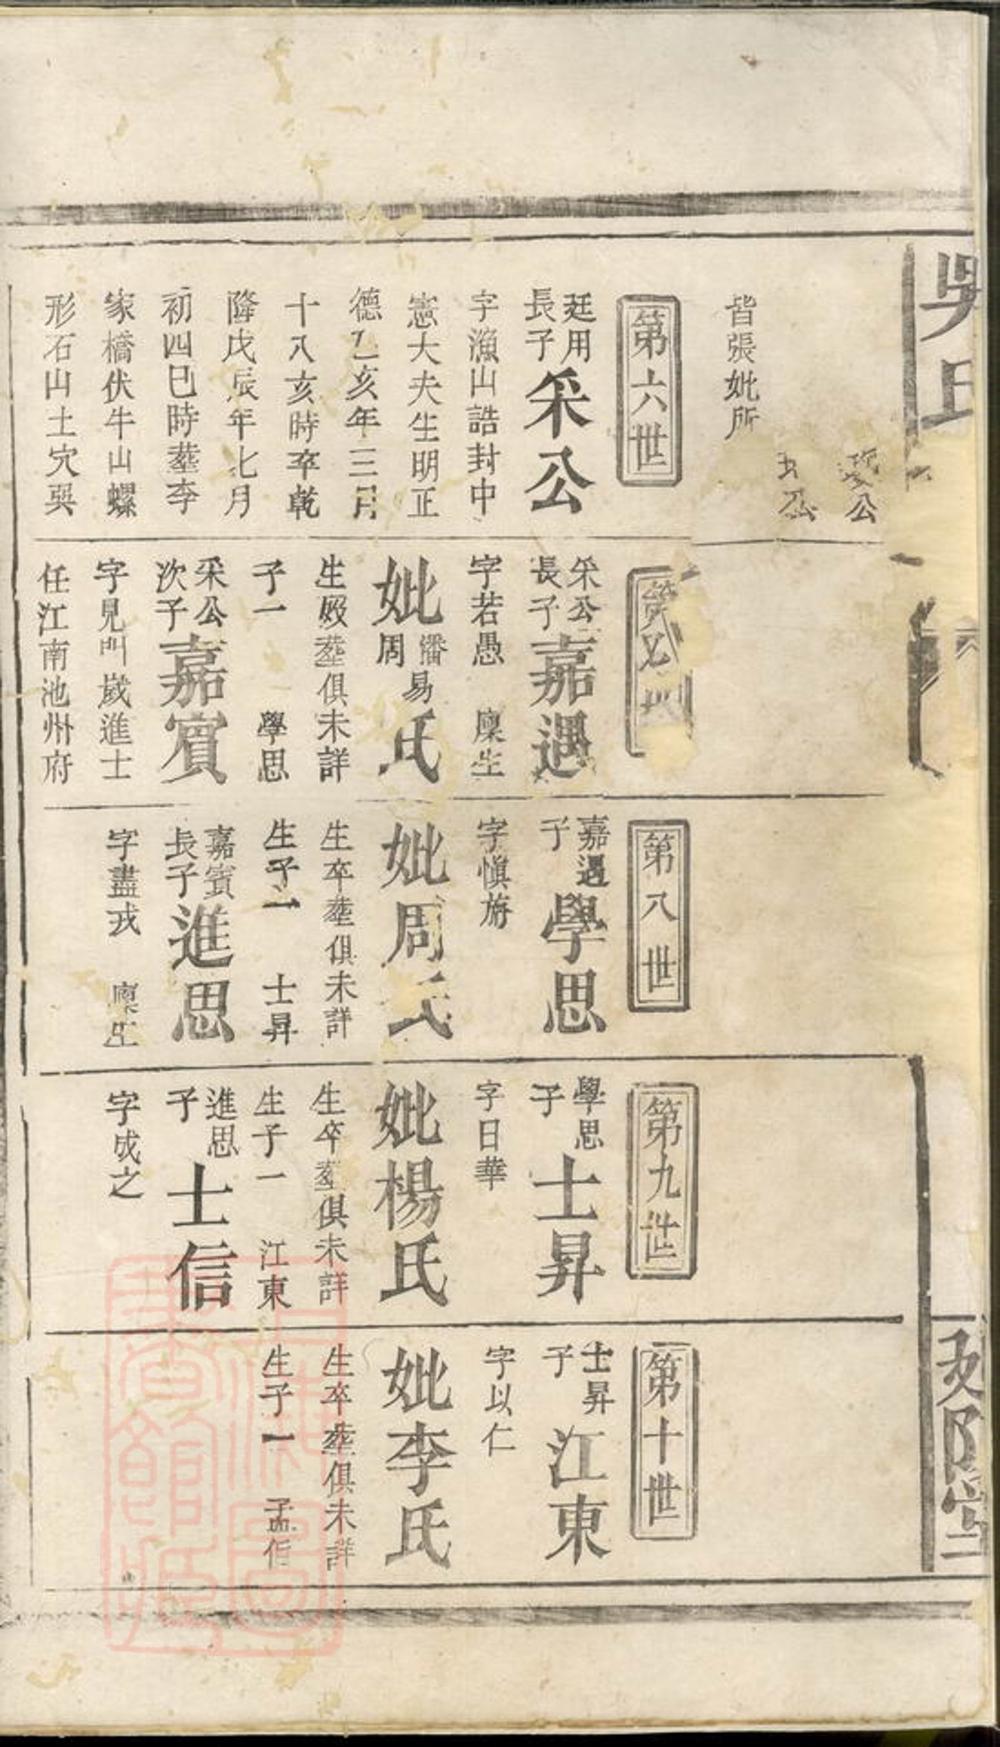 吳氏
公
公
皆張妣所
第六世
廷用
長子
采公
字漁山誥封中
憲大夫生明正
德乙亥年三月
十八亥時卒乾
隆戊辰年七月
初四巳時塟李
家橋伏牛山螺
形石山土穴巽
采公
長子
嘉遇
字若愚 廩生
妣
潘
周
易
氏
生殁塟俱未詳
子一 學思
采公
次子
嘉賓
字見 嵗進士
任江南池州府
第八世
嘉遇
子
學思
字慎旃
妣周氏
生卒塟俱未詳
生子一 士昇
嘉賓
長子
進思
字盡戎 廩生
第九世
學思
子
士昇
字日華
妣楊氏
生卒塟俱未詳
生子一 江東
進思
子
士信
字成之
第十世
士昇
子
江東
字以仁
妣李氏
生卒塟俱未詳
生子一 孟信